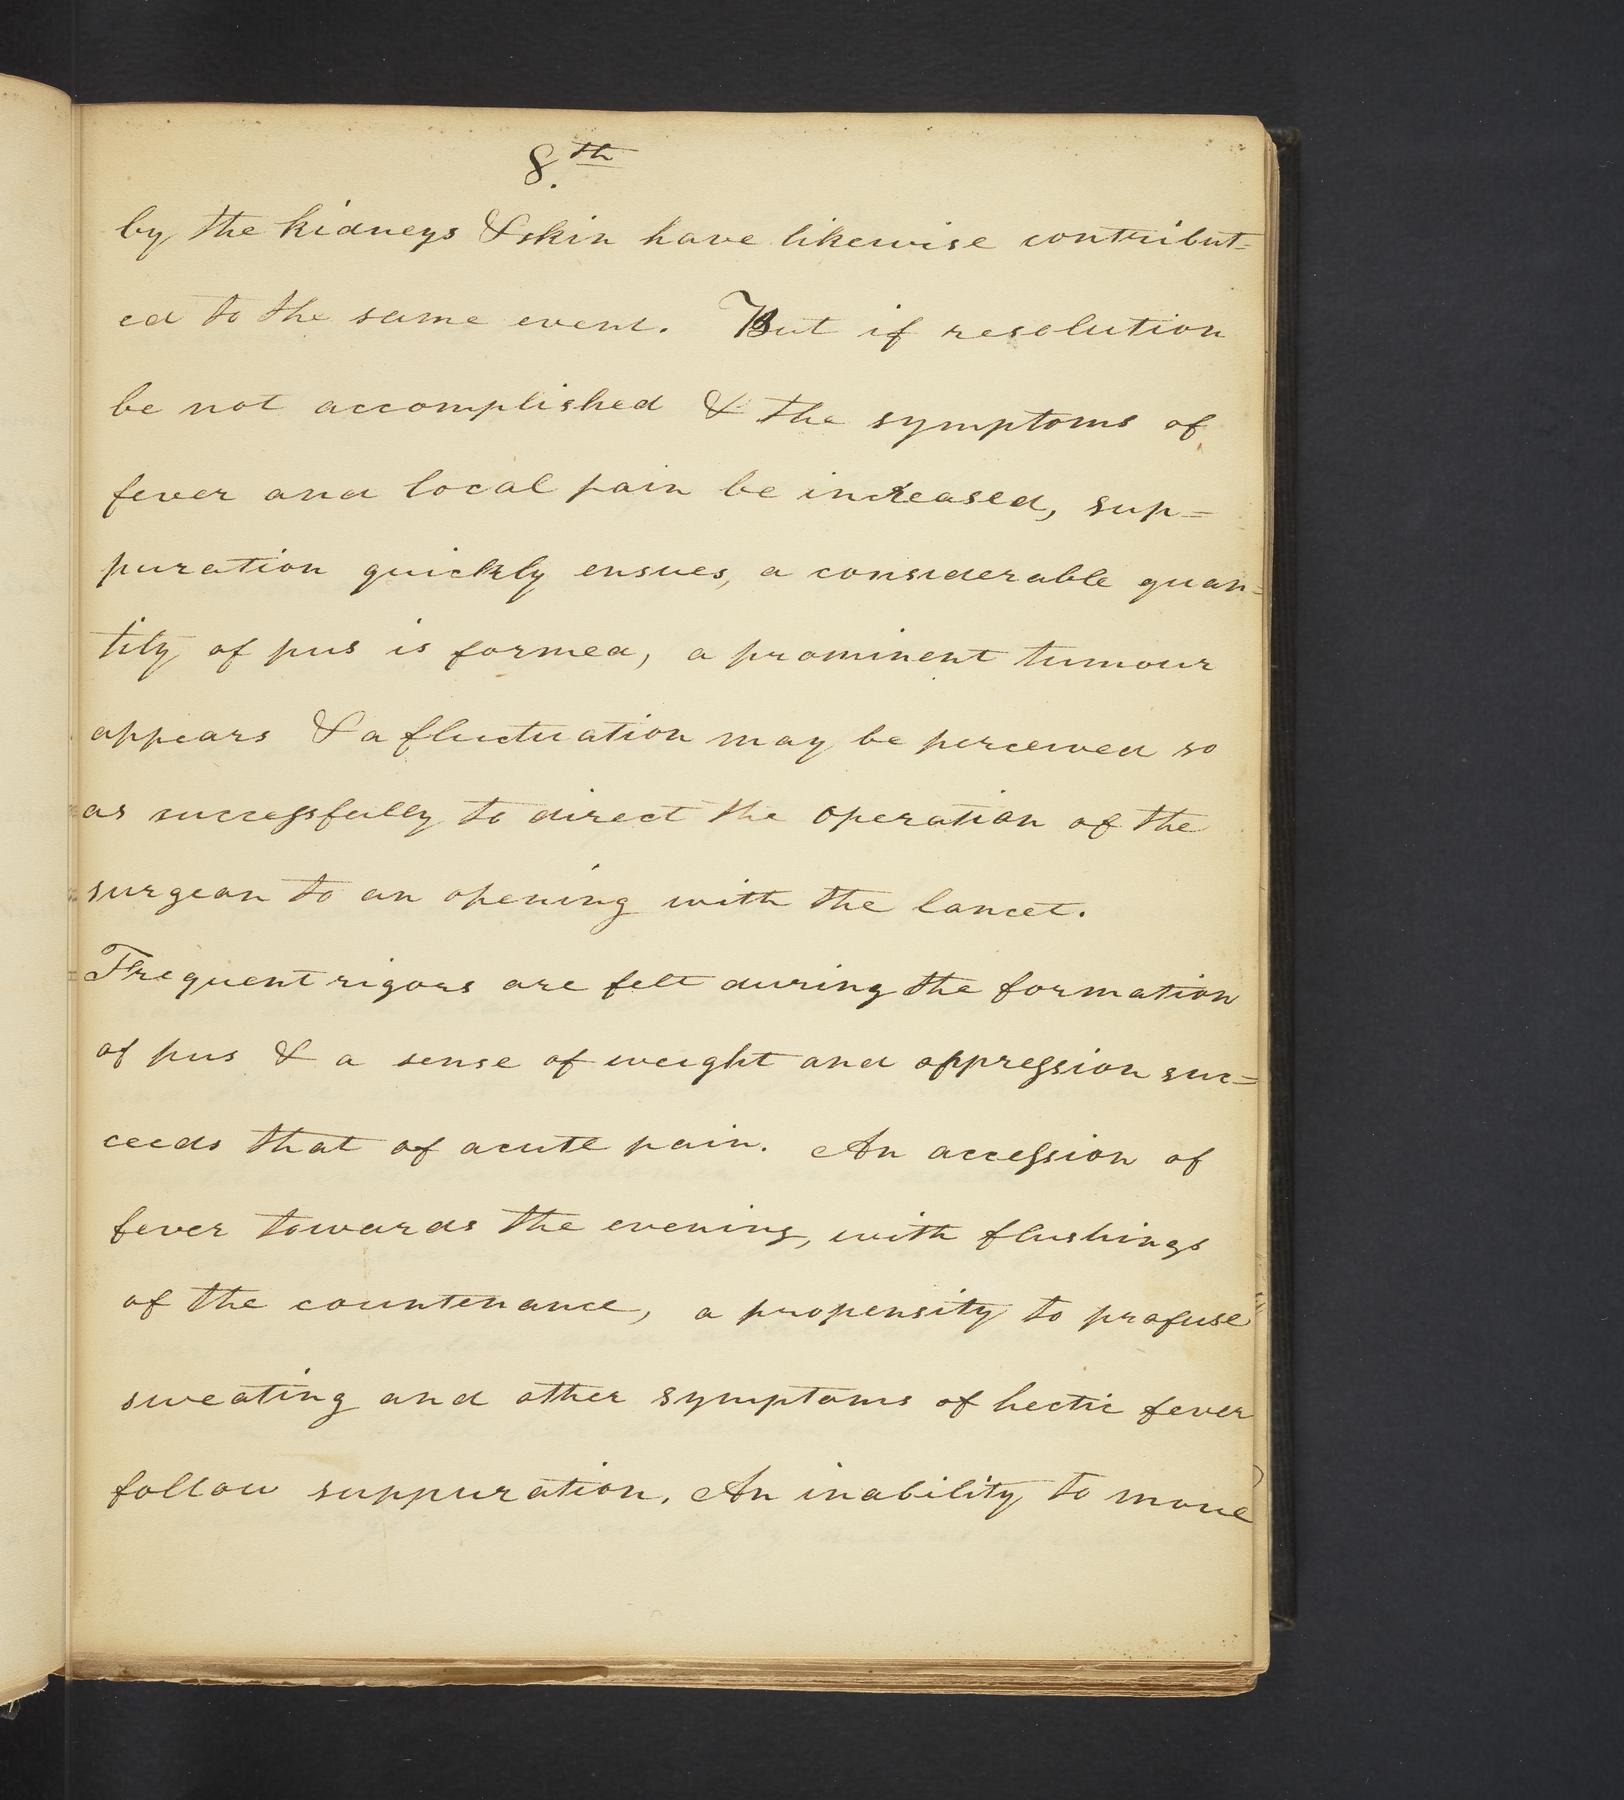 8.th
by the kidneys & skin have likewise contribut-
ed to the same event. But if resolution
be not accomplished & the symptoms of
fever and local pain be increased, sup=
puration quickly ensues, a considerable quan=
tity of pus is formed, a prominent tumour
appears & a fluctuation may be perceived so
as successfully to direct the operation of the
surgeon to an opening with the lancet.
Frequent rigors are felt during the formation
of pus & a sense of weight and oppression suc=
ceeds that of acute pain. An accession of
fever towards the evening, with flushings
of the countenance, a propensity to profuse
sweating and other symptoms of hectic fever
follow suppuration. An inability to move